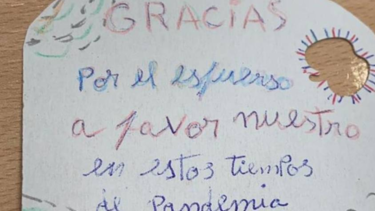 GRACIAS
Por el esfuerso
a favor nuestro
en estos tiempos
de Pandemia